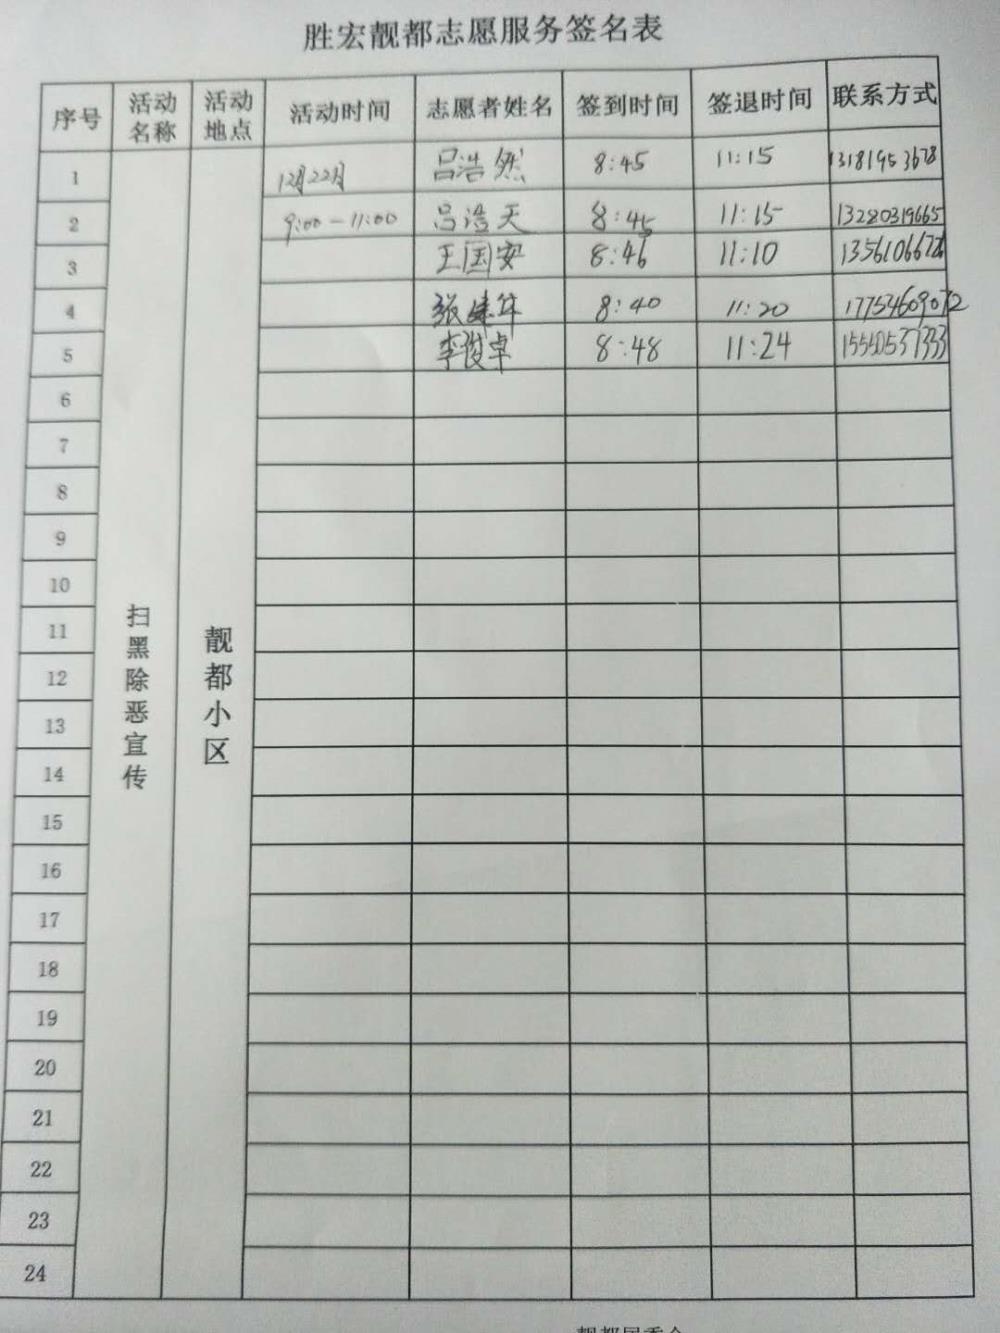 胜宏靓都志愿服务签名表
序号 活动名称 活动地点 活动时间 志愿者姓名 签到时间 签退时间 联系方式
扫黑除恶宣传
靓都小区
1 12月22日 吕浩然 8:45 11:15 13181953678
2 9:00-11:00 吕浩天 8:45 11:15 13280319665
3 王国安 8:46 11:10
4 8:40 11:20 17754609072
5 李俊卓 8:48 11:24 15550537333
6
7
8
9
10
11
12
13
14
15
16
17
18
19
20
21
22
23
24